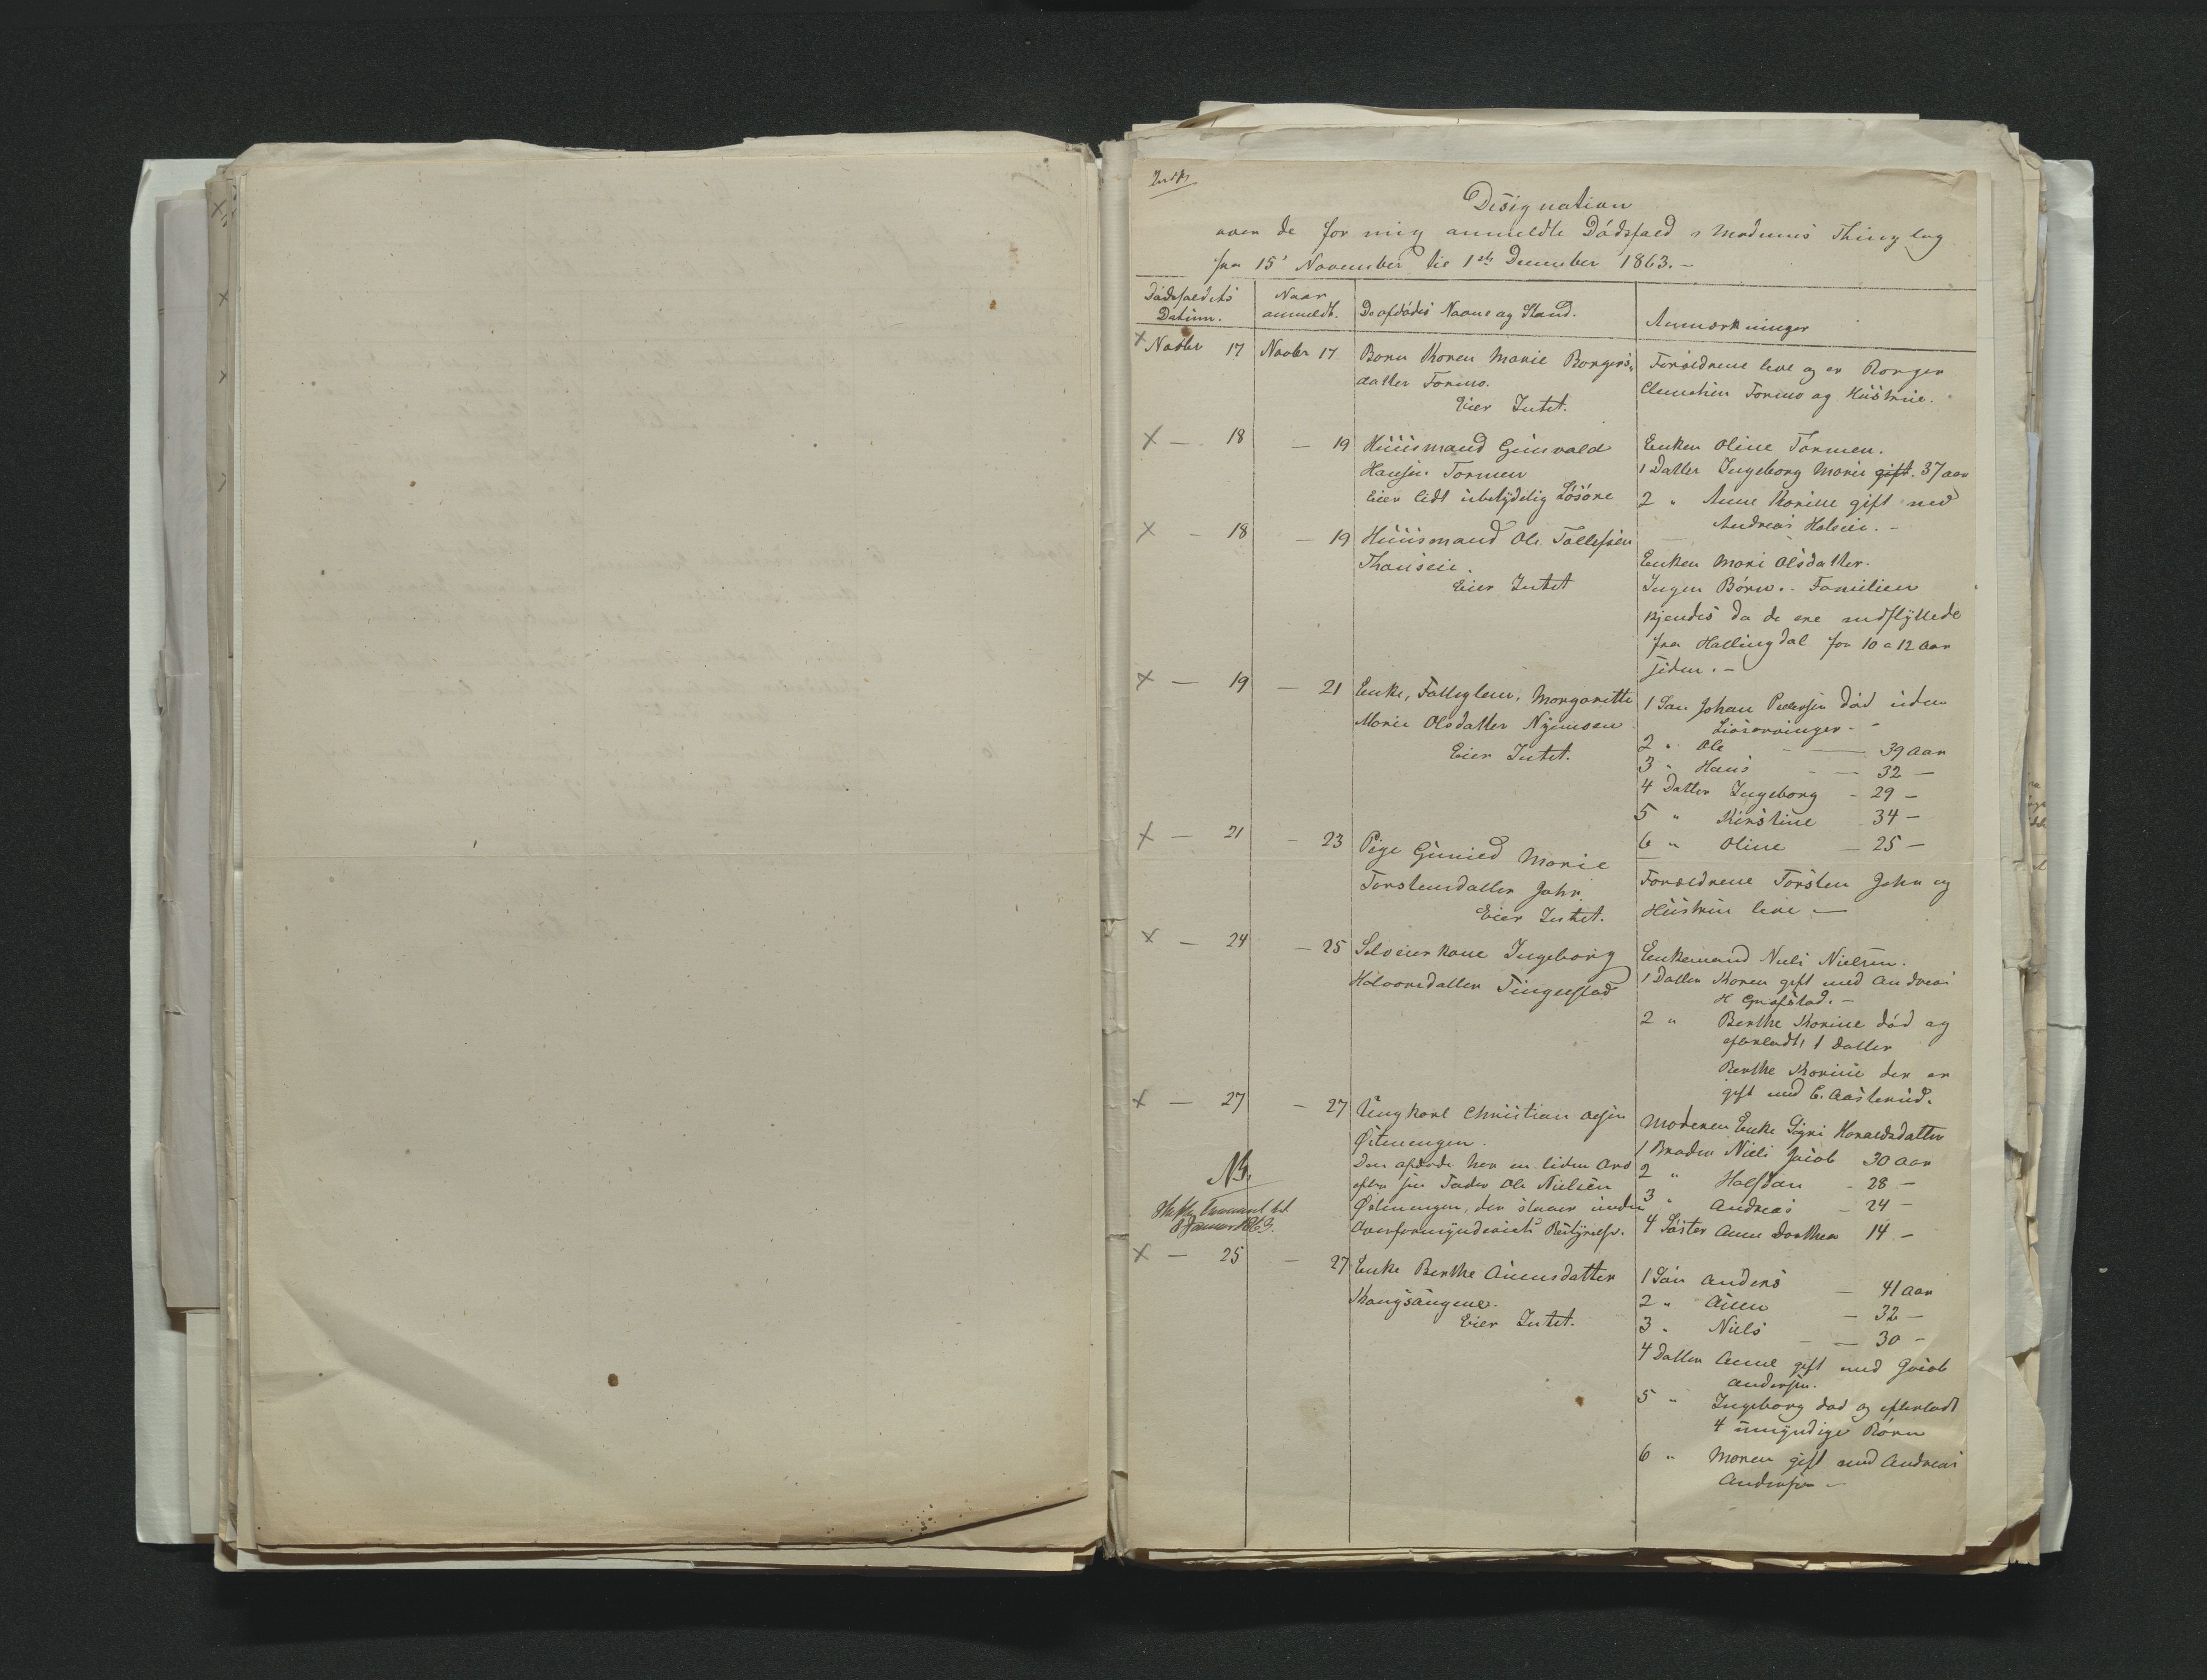 Designation
over de for mig anmeldte Dödsfald i Modums Thinglag
fra 15' November til 1ste December 1863.-
Dödsfaldets
Datum.
Naar
anmeldt.
De afdödes Navne og Stand.
Anmærkninger
Novbr 17
Novbr 17
Barn Karen Marie Borgers-
datter Formo.
Eier Intet.
Forældrene leve og er Borger
Clemetsen Formo og Hustrue.
- 18
- 19
Huusmand Gunvald
Hansen Formoen
Eier lidt ubetydelig Lösöre
Enken Oline Formoen.
1 Datter Ingeborg Marie gift. 37 aar
2 " Anne Karine gift med
Andreas Halseie.-
- 18
- 19
Huusmand Ole Tollefsen
Thonseie.
Eier Intet
Enken Mari Olsdatter.
Ingen Börn.- Familien
kjendes da de ere indflyttede
fra Hallingdal for 10 a 12 aar
siden.-
- 19
- 21
Enke, Fattiglem, Margarethe
Marie Olsdatter Nymoen
Eier Intet.
1 Sön Johan Pedersen död uden
Livsarvinger.-
2 " Ole - 39 aar
3 " Hans - 32 -
4 Datter Ingeborg - 29 -
5 " Kirstine 34 -
6 " Oline - 25 -
- 21
- 23
Pige Gunild Marie
Torstensdatter Jahr.
Eier Intet.
Forældrene Torsten Jahr og
Hustru leve.-
- 24
- 25
Selveierkone Ingeborg
Halvorsdatter Tingelstad
Enkemand Niels Nielsen.
1 Datter Karen gift med Andreas
H Gravstad.-
2 " Berthe Karine död og
efterladt 1 Datter
Berthe Karine der er
gift med C. Aasterud.
- 27
- 27
Ungkarl Christian Olsen
Östenengen.
Den afdøde har en liden Arv
efter sin Fader Ole Nielsen
Östenengen, der staaer under
Overformynderiets Bestyrelse.
Moderen Enke Sigri Haraldsdatter
1 Broder Niels Jacob 30 aar
2 " Halfdan - 28 -
3 " Andreas - 24 -
4 Söster Anne Dorthea 14 -
NB.
- 25
- 27
Enke Berthe Amundsdatter
Kongsangene.
Eier Intet.
1 Sön Anders - 41 aar
2 " Amund - 32 -
3 " Niels - 30 -
4 Datter Anne gift med Jacob
Andersen.
5 " Ingeborg död og efterladt
4 umyndige Börn
6 " Maren gift med Andreas
Andersen -